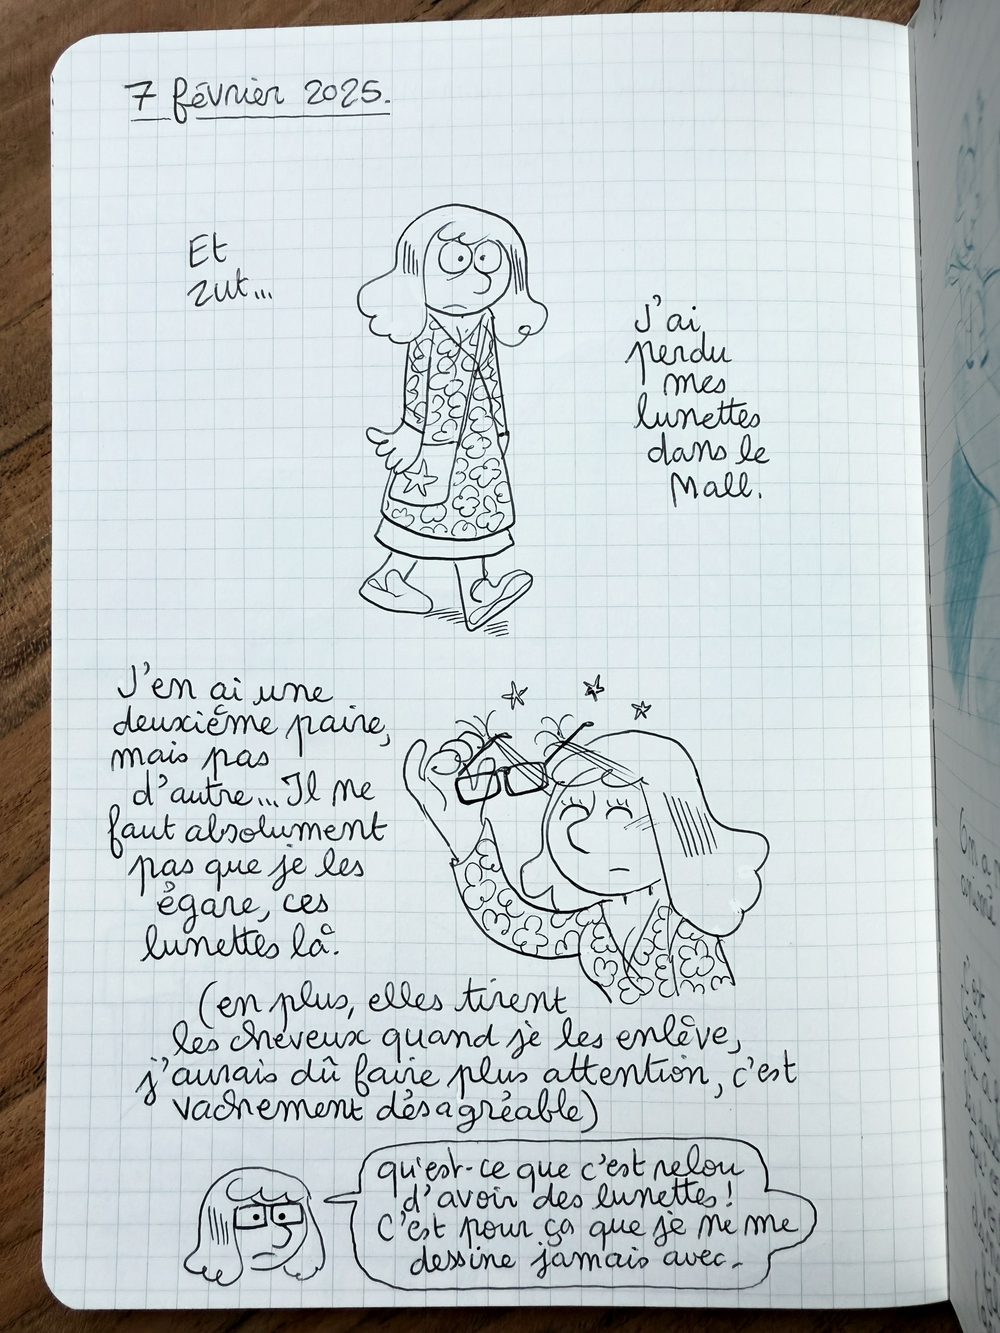 7 février 2025.
Et
zut...
J'ai
perdu
mes
lunettes
dans le
Mall.
J'en ai une
deuxième paire,
mais pas
d'autre... Il ne
faut absolument
pas que je les
égare, ces
lunettes là.
(en plus, elles tirent
les cheveux quand je les enlève,
j'aurais dû faire plus attention, c'est
vachement désagréable)
qu'est-ce que c'est relou
d'avoir des lunettes!
C'est pour ça que je ne me
dessine jamais avec.